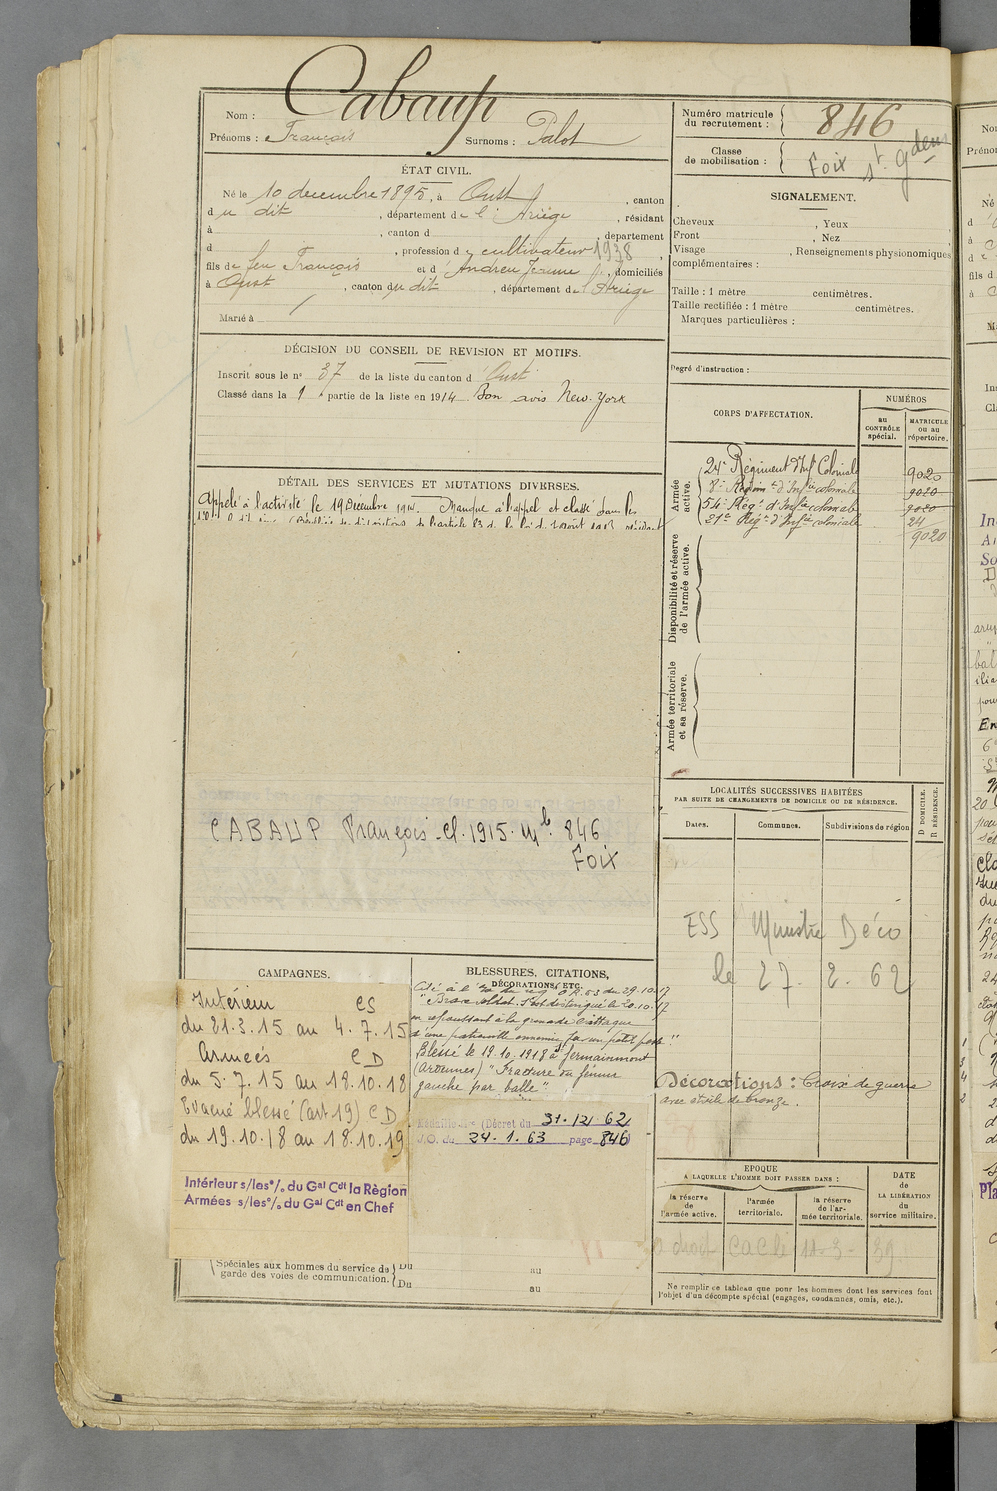 Nom : Cabaup
Prénoms : François Surnoms : Palot
Numéro matricule
du recrutement : 846
Classe
de mobilisation : Foix St Gdens
ÉTAT CIVIL.
Né le 10 decembre 1895, à Oust, canton
du dit, département de l'Ariège, résidant
à , canton d , département
d , profession de cultivateur 1938
fils de feu François et d'Andreu Jeanne f., domiciliés
à Oust, canton du dit, département de l'Ariège
Marié à
SIGNALEMENT.
Cheveux , Yeux ,
Front , Nez ,
Visage , Renseignements physionomiques
complémentaires :
Taille : 1 mètre centimètres.
Taille rectifiée : 1 mètre centimètres.
Marques particulières :
Degré d'instruction :
DÉCISION DU CONSEIL DE REVISION ET MOTIFS.
Inscrit sous le n° 37 de la liste du canton d'Oust
Classé dans la 1 partie de la liste en 1914 Bon avis New-York
CORPS D'AFFECTATION.
NUMÉROS
au
CONTRÔLE
spécial.
MATRICULE
ou au
répertoire.
Armée
active.
24e Régiment d'Inf Coloniale 9020
8e Régimt d'Infie coloniale 9020
54e Régt d'Infie coloniale 9020
21e Régt d'Infie coloniale 24
9020
Disponibilité et réserve
de l'armée active.
Armée territoriale
et sa réserve.
DÉTAIL DES SERVICES ET MUTATIONS DIVERSES.
Appelé à l'activité le 19 Décembre 1914. Manque à l'appel et classé dans les
CABAUP François Cl. 1915. Mle 846
Foix
LOCALITÉS SUCCESSIVES HABITÉES
PAR SUITE DE CHANGEMENTS DE DOMICILE OU DE RÉSIDENCE.
Dates. Communes. Subdivisions de région
D DOMICILE.
R RÉSIDENCE.
ESS Ministre Déco
le 27. 2. 62
Décorations : Croix de guerre
avec étoile de bronze.
CAMPAGNES.
Intérieur CS
du 21.3.15 au 4.7.15
Armées CD
du 5.7.15 au 18.10.18
Evacué blessé (art 19) CD
du 19.10.18 au 18.10.19
Intérieur s/les°/° du Gal Cdt la Règion
Armées s/les°/° du Gal Cdt en Chef
Spéciales aux hommes du service de
garde des voies de communication.
Du au
Du au
BLESSURES, CITATIONS,
DÉCORATIONS, ETC.
Cité à l'o du reg O R. 53 du 29.10.17
"Brave soldat. S'est distingué le 20.10.17
en repoussant à la grenade l'attaque
d'une patrouille ennemie sur un petit poste"
Blessé le 19.10.1918 à Germainmont
(Ardennes) "Fracture du fémur
gauche par balle"
Médaille (Décret du 31.12.62
J.O. du 24.1.63 page 846)
EPOQUE
A LAQUELLE L'HOMME DOIT PASSER DANS :
la réserve
de
l'armée active.
l'armée
territoriale.
la réserve
de l'ar-
mée territoriale.
DATE
de
LA LIBÉRATION
du
service militaire.
11-3- 39.
Ne remplir ce tableau que pour les hommes dont les services font
l'objet d'un décompte spécial (engagés, condamnés, omis, etc.).